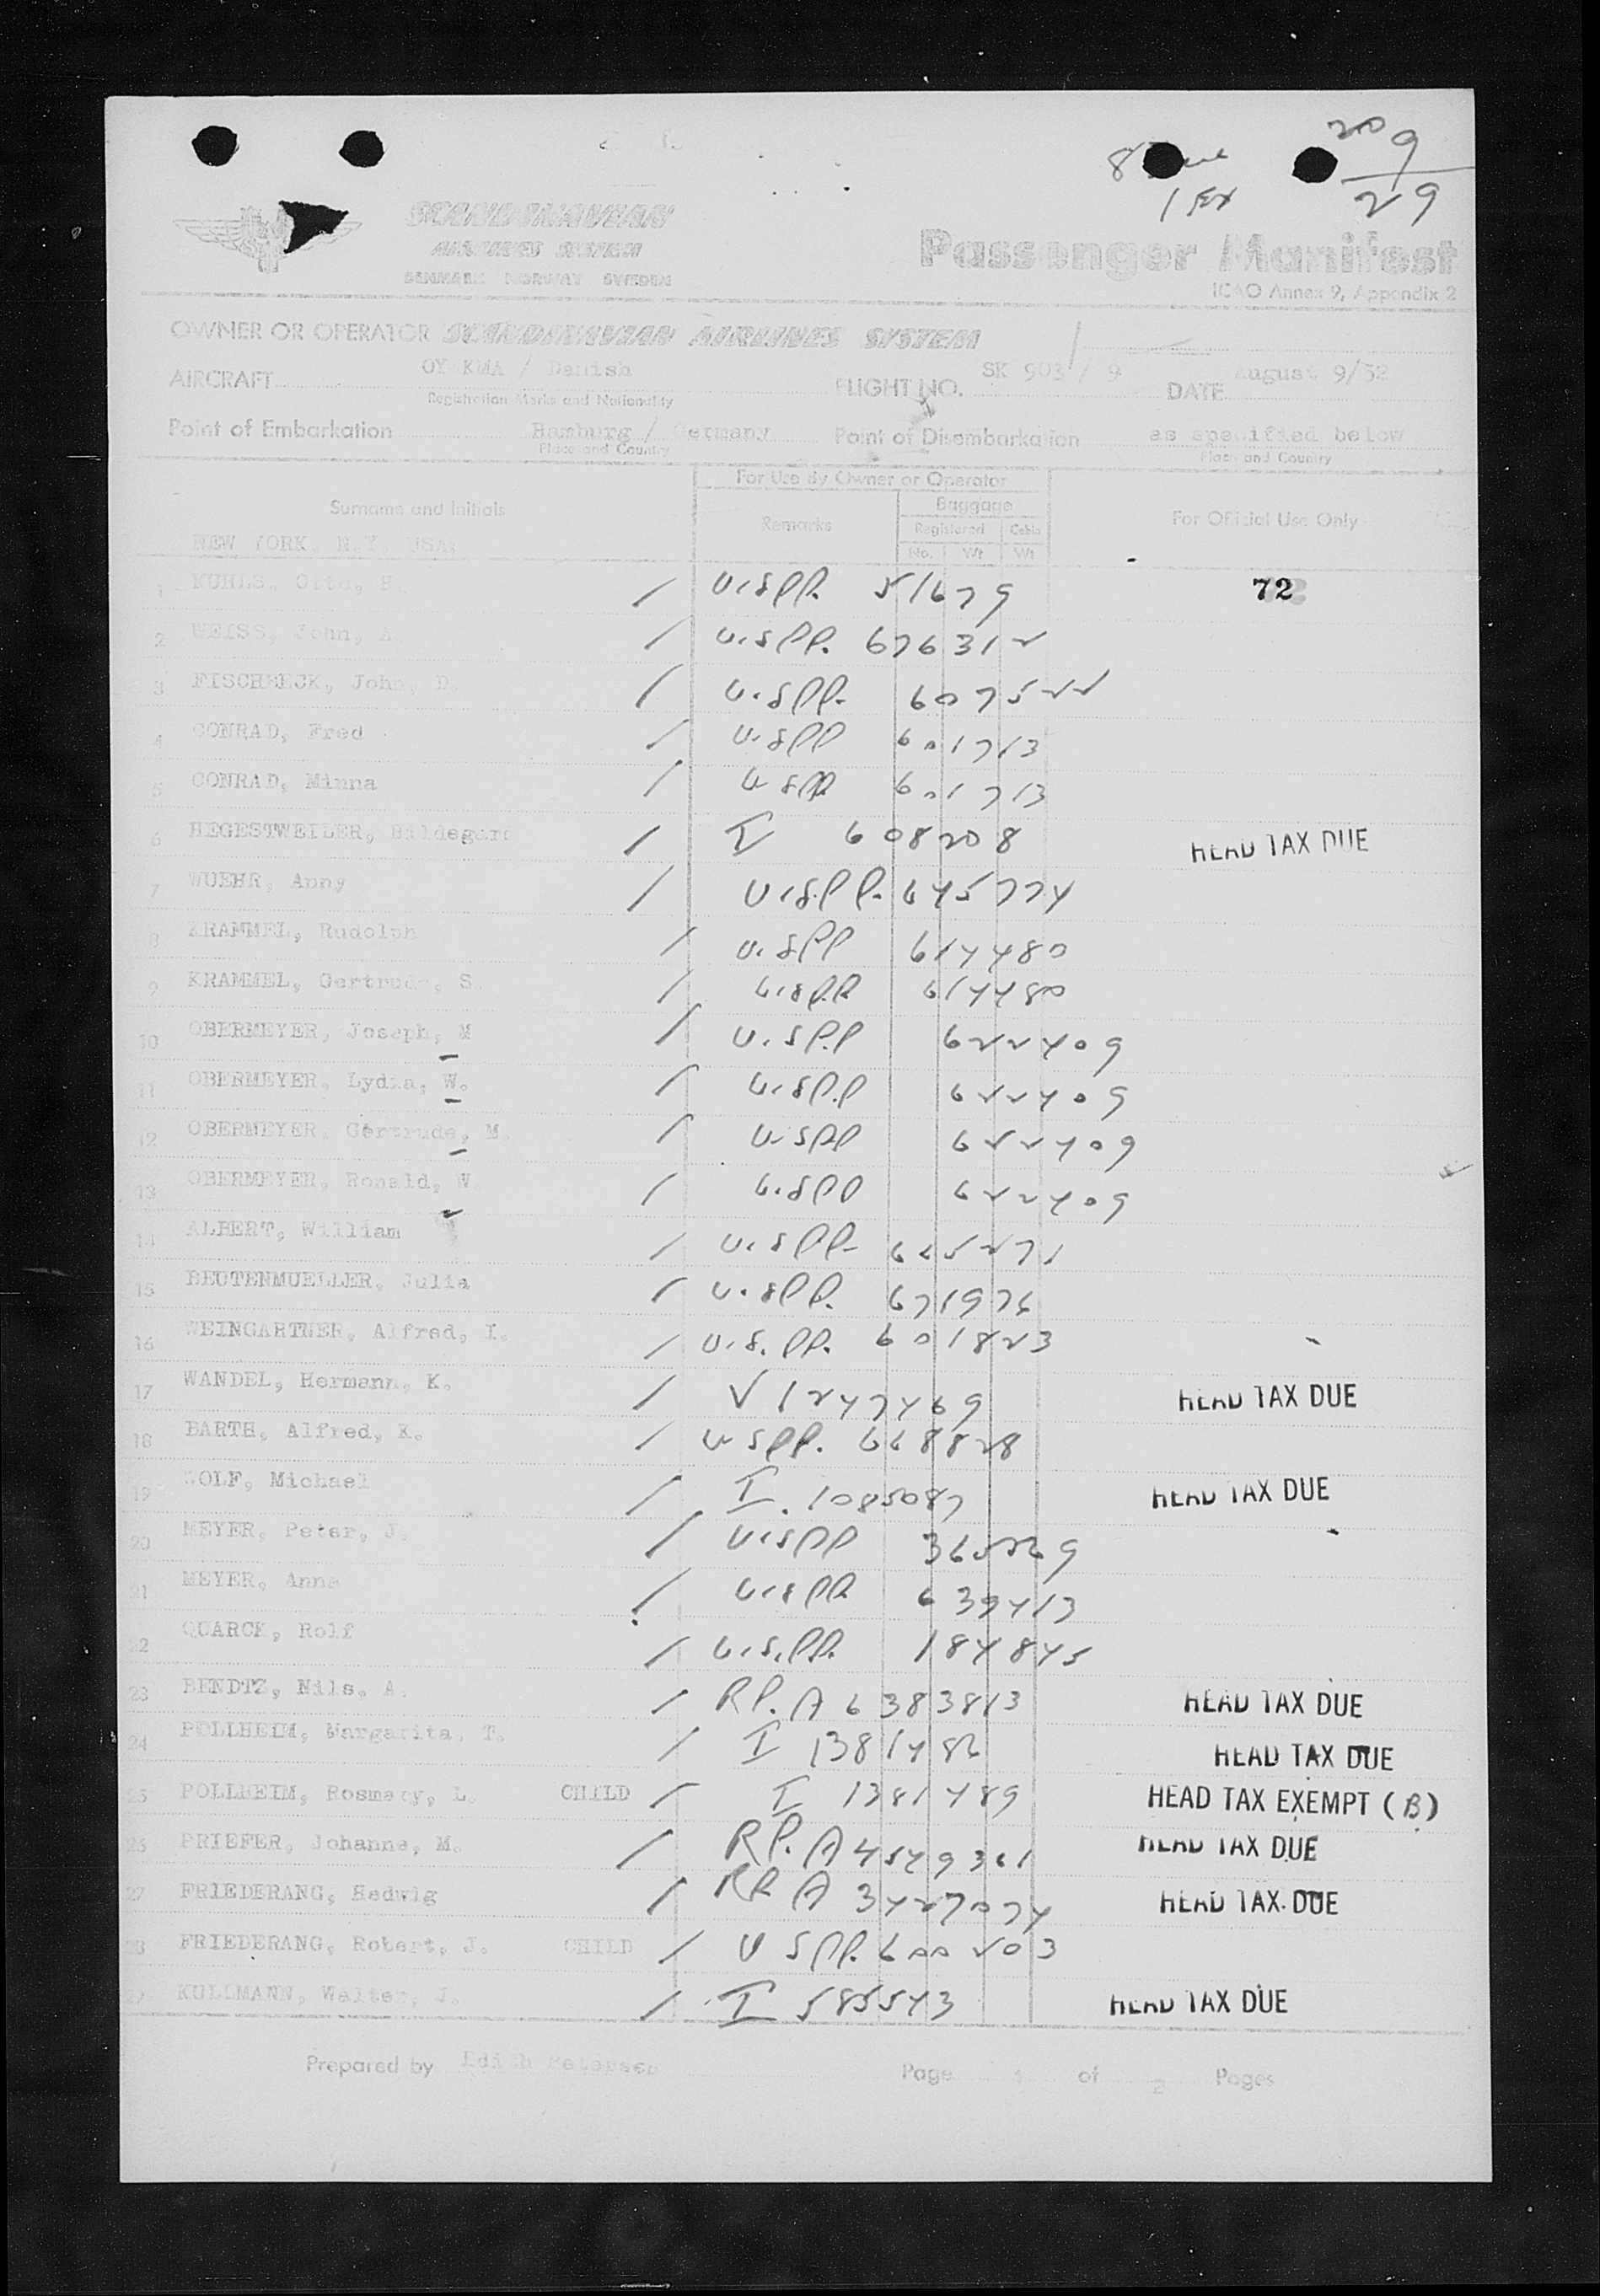 20 9
8 Due 29
1 Ex
SCANDINAVIAN
AIRLINES SYSTEM
DENMARK NORWAY SWEDEN
Passenger Manifest
ICAO Annex 9, Appendix 2
OWNER OR OPERATOR SCANDINAVIAN AIRLINES SYSTEM
AIRCRAFT OY KMA / Danish FLIGHT NO. SK 903 / 9 DATE August 9/52
Registration Marks and Nationality
Point of Embarkation Hamburg / Germany Point of Disembarkation as specified below
Place and Country Place and Country
For Use By Owner or Operator
Surname and Initials Remarks Baggage For Official Use Only
Registered Cabin
No. Wt Wt
NEW YORK, N.Y. USA:
1 KUHLS, Otto, H. / U.S.PP. 51679 72
2 WEISS, John, A. / U.S.PP. 676312
3 FISCHBECK, John, D. / U.S.PP. 607522
4 CONRAD, Fred / U.S.PP 601713
5 CONRAD, Minna / U.S.PP. 601713
6 HEGESTWEILER, Hildegard / I 608208 HEAD TAX DUE
7 WUEHR, Anny / U.S.P.P. 645774
8 KRAMMEL, Rudolph / U.S.PP 614480
9 KRAMMEL, Gertrude, S. / U.S.P.P. 614480
10 OBERMEYER, Joseph, M / U.S.P.P 622409
11 OBERMEYER, Lydia, W. / U.S.P.P 622409
12 OBERMEYER, Gertrude, M. / U.S.PP 622409
13 OBERMEYER, Ronald, W / U.S.PP 622409
14 ALBERT, William / U.S.PP. 665271
15 BEUTENMUELLER, Julia / U.S.PP. 671976
16 WEINGARTNER, Alfred, I. / U.S.PP. 601823
17 WANDEL, Hermann, K. / V 1247469 HEAD TAX DUE
18 BARTH, Alfred, K. / U.S.PP. 668828
19 WOLF, Michael / I. 1085087 HEAD TAX DUE
20 MEYER, Peter, J. / U.S.PP
21 MEYER, Anna / U.S.PP. 639413
22 QUARCK, Rolf / U.S.PP. 184845
23 BENDTZ, Nils, A. / R.P. A 6383813 HEAD TAX DUE
24 POLLHEIM, Margarita, T. / I 1381482 HEAD TAX DUE
25 POLLHEIM, Rosmary, L. CHILD / I 1381489 HEAD TAX EXEMPT (B)
26 PRIEFER, Johanna, M. / R.P. A 4549361 HEAD TAX DUE
27 FRIEDERANG, Hedwig / R.P. A 3427074 HEAD TAX DUE
28 FRIEDERANG, Robert, J. CHILD / U.S.PP. 600203
29 KULLMANN, Walter, J. / I 585543 HEAD TAX DUE
Prepared by Edith Petersen Page 1 of 2 Pages